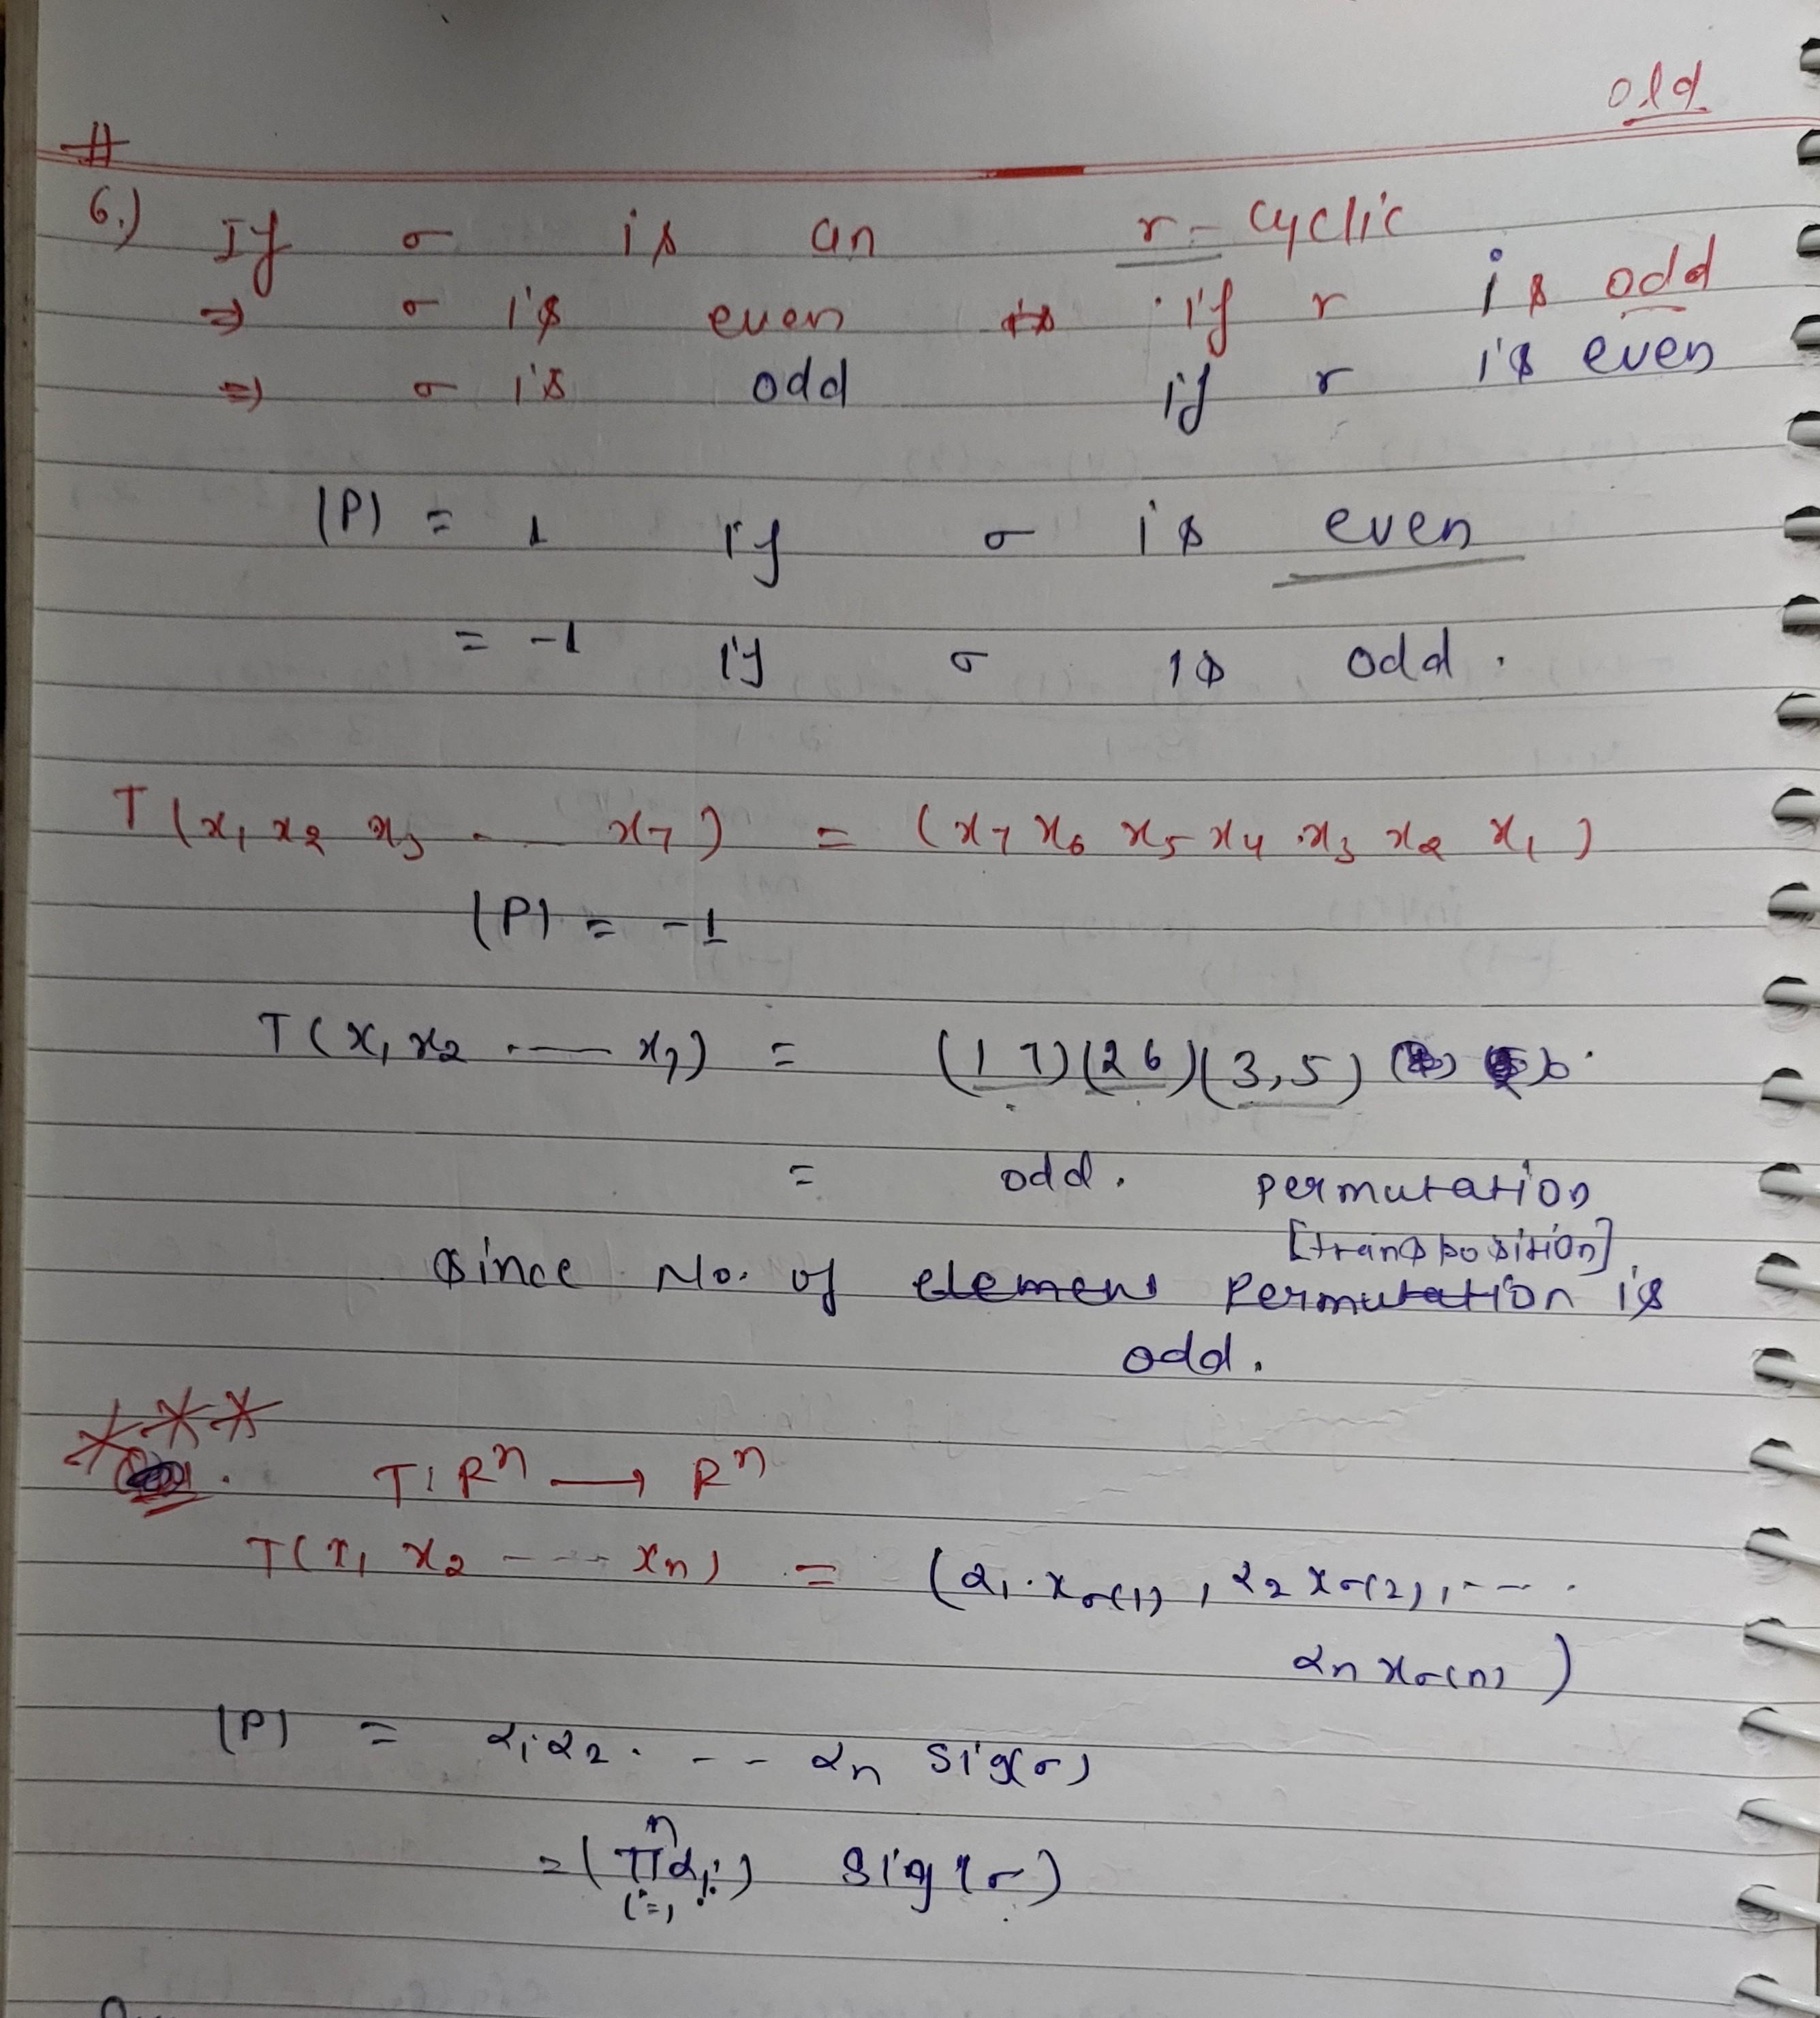 old
#
6.) If σ is an r-cyclic
⇒ σ is even if r is odd
⇒ σ is odd if r is even
|P| = 1 if σ is even
= -1 if σ is odd.
T(x₁ x₂ x₃ - — x₇) = (x₇ x₆ x₅ x₄ x₃ x₂ x₁)
|P| = -1
T(x₁ x₂ .— x₇) = (1 7)(2 6)(3,5)
= odd. permutation
[transposition]
since No. of element Permutation is
odd.
***
T: Rⁿ → Rⁿ
T(x₁ x₂ ---- xₙ) = (α₁.x_σ(1), α₂ x_σ(2), ---.
αₙ x_σ(n))
|P| = α₁α₂. -- αₙ Sig(σ)
= (∏ⁿᵢ₌₁ αᵢ) Sig(σ)